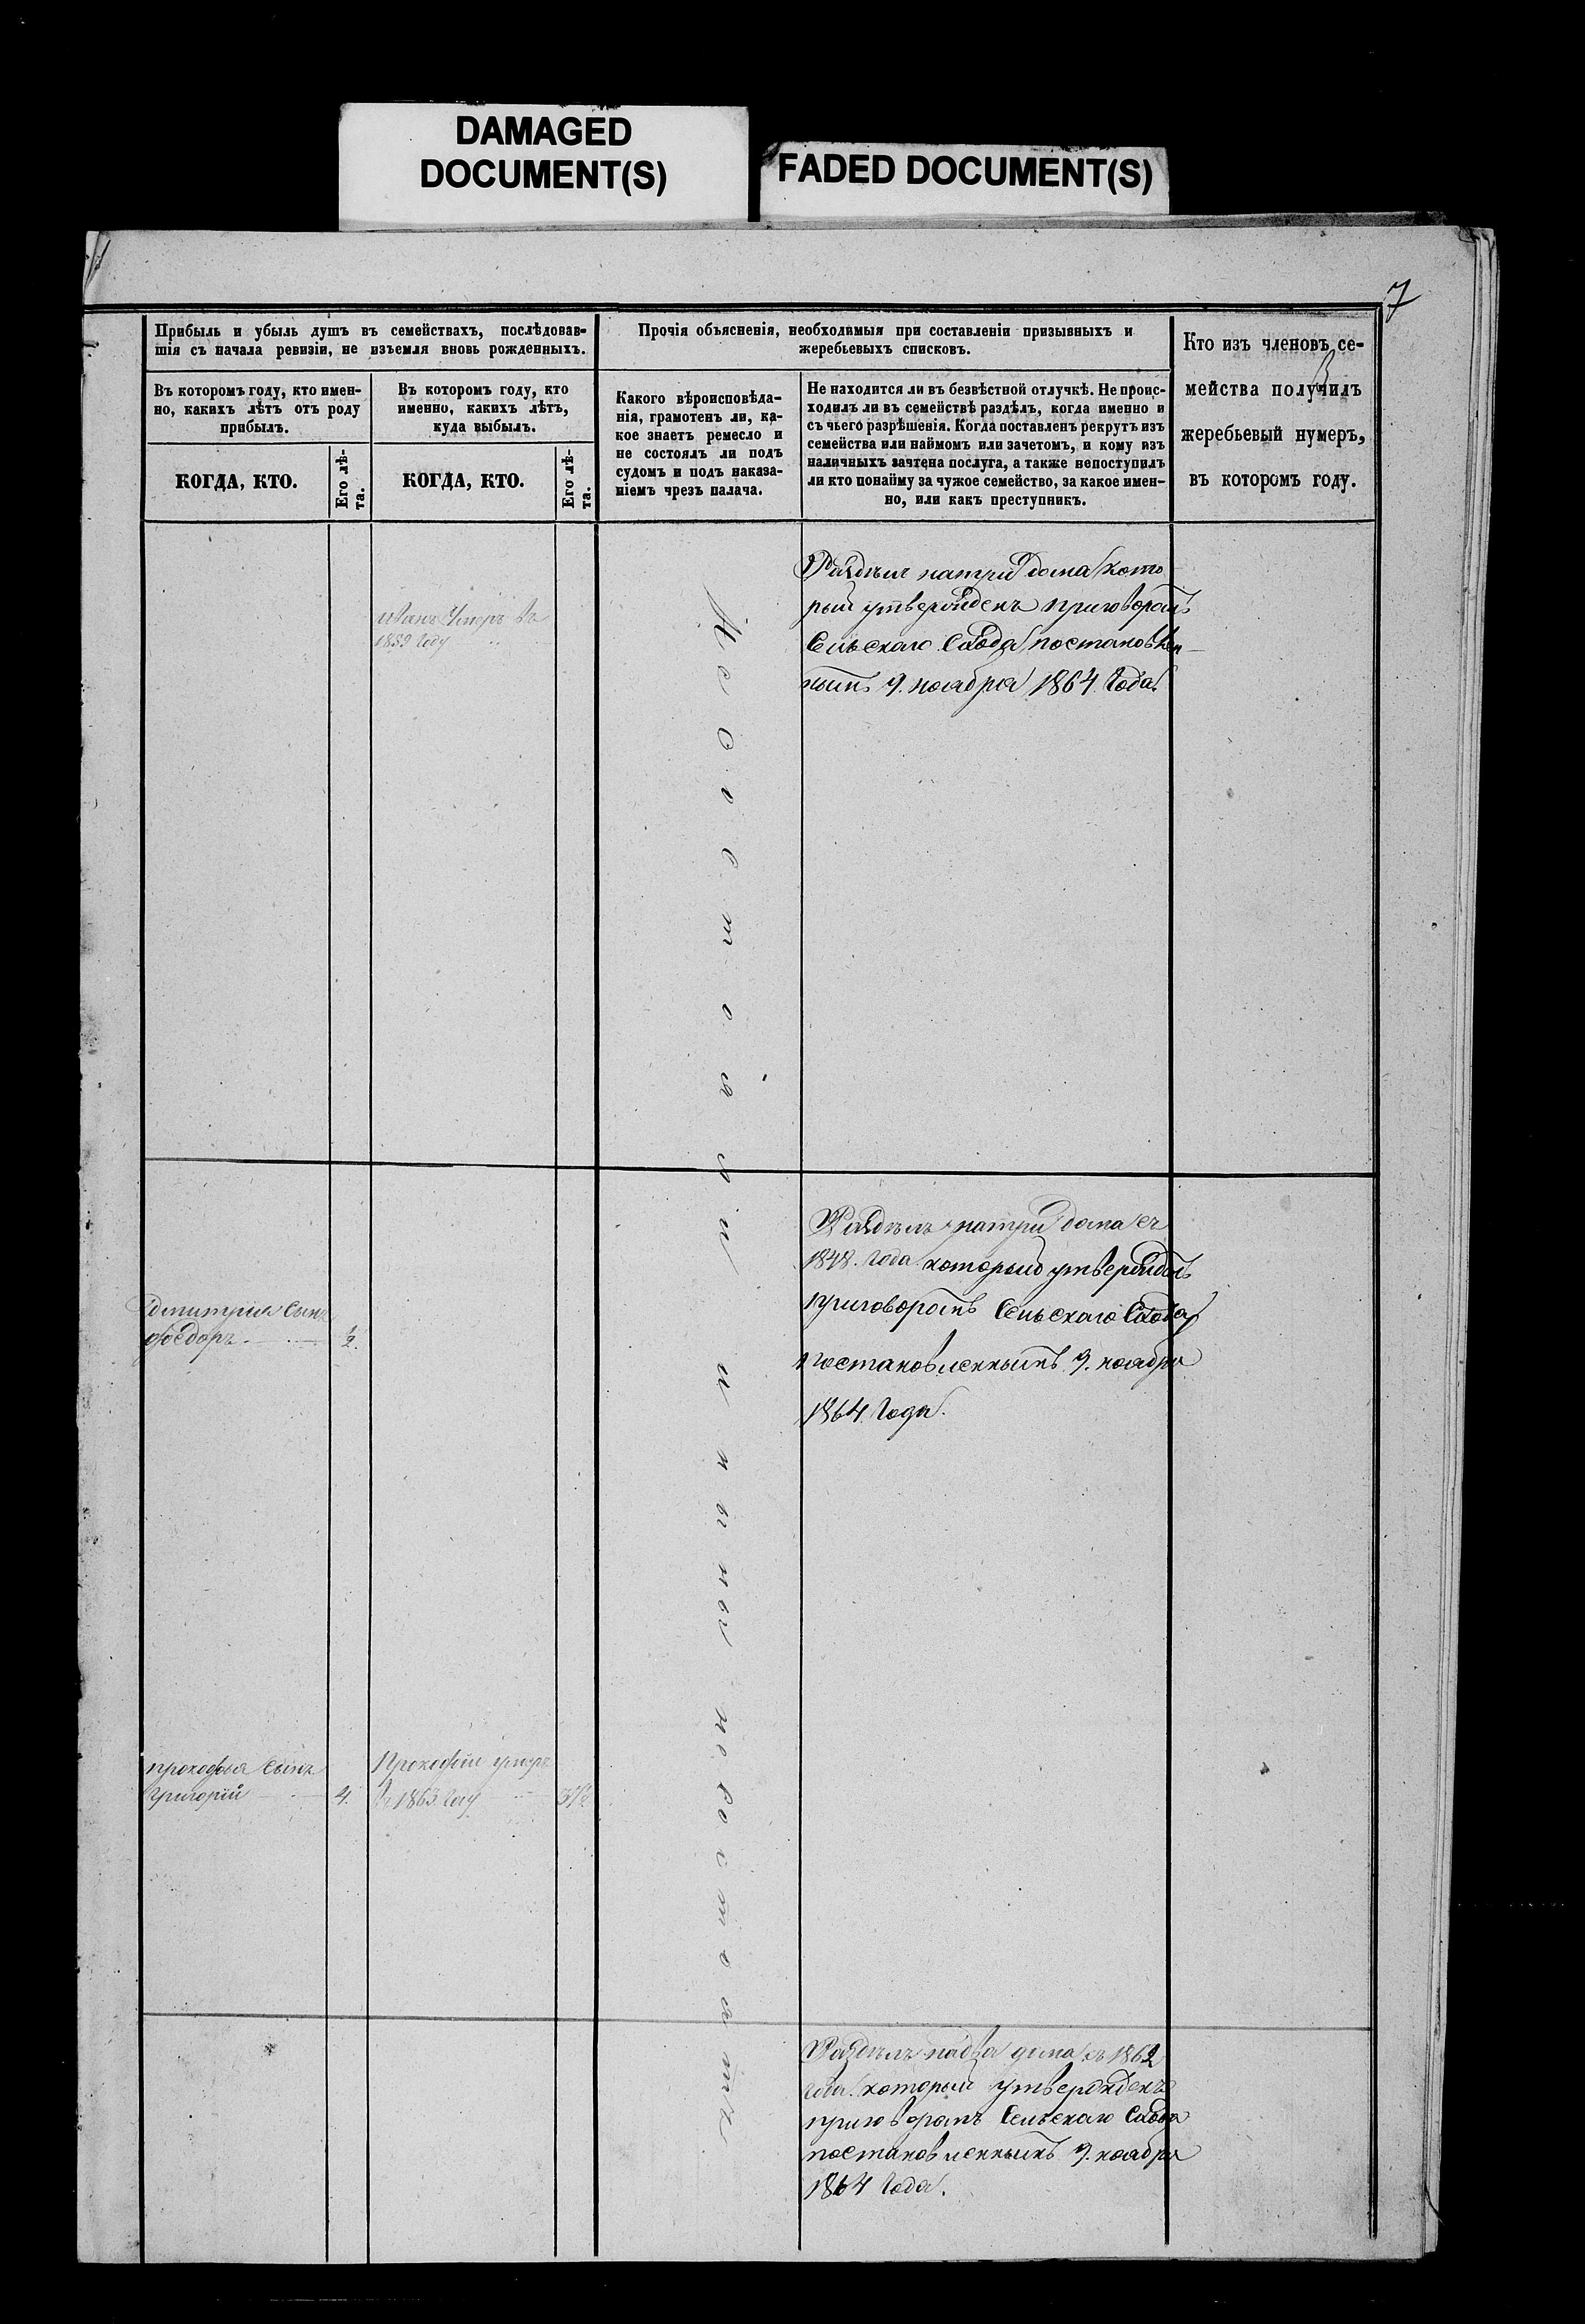 DAMAGED
DOCUMENT(S)
FADED DOCUMENT(S)
7
Прибыль и убыль душъ въ семействахъ, послѣдовав-
шія съ начала ревизіи, не изъемля вновь рожденныхъ.
Прочія объясненія, необходимыя при составленіи призывныхъ и
жеребьевыхъ списковъ.
Кто изъ членовъ се-
мейства получилъ
жеребьевый нумеръ,
въ которомъ году.
Въ которомъ году, кто имен-
но, какихъ лѣтъ отъ роду
прибылъ.
Въ которомъ году, кто
именно, какихъ лѣтъ,
куда выбылъ.
Какого вѣроисповѣда-
нія, грамотенъ ли, ка-
кое знаетъ ремесло и
не состоялъ ли подъ
судомъ и подъ наказа-
ніемъ чрезъ палача.
Не находится ли въ безвѣстной отлучкѣ. Не проис-
ходилъ ли въ семействѣ раздѣлъ, когда именно и
съ чьего разрѣшенія. Когда поставленъ рекрутъ изъ
семейства или наймомъ или зачетомъ, и кому изъ
наличныхъ зачтена послуга, а также непоступилъ
ли кто понайму за чужое семейство, за какое имен-
но, или какъ преступникъ.
КОГДА, КТО.
Его лѣ-
та.
КОГДА, КТО.
Его лѣ-
та.
Иванъ Умеръ въ
1859 году
Раздѣлъ натри дома кото
рый утвержденъ приговоромъ
Сельскаго Схода постановлен-
нымъ 9. ноября 1864 Года.
Несостояли и нынѣ несостоятъ
Раздѣлъ натри дома съ
1848. года который утвержденъ
приговоромъ Сельскаго Схода
постановленнымъ 9. ноября
1864 Года.
Дмитрия Сынъ
Ѳедоръ ½.
прокофья Сынъ
Григорій 4.
Прокофій умеръ
въ 1863 Году
Раздѣлъ надва дома съ 1862
года. который утвержденъ
приговоромъ Сельскаго Схода
постановленнымъ 9. ноября
1864 Года.